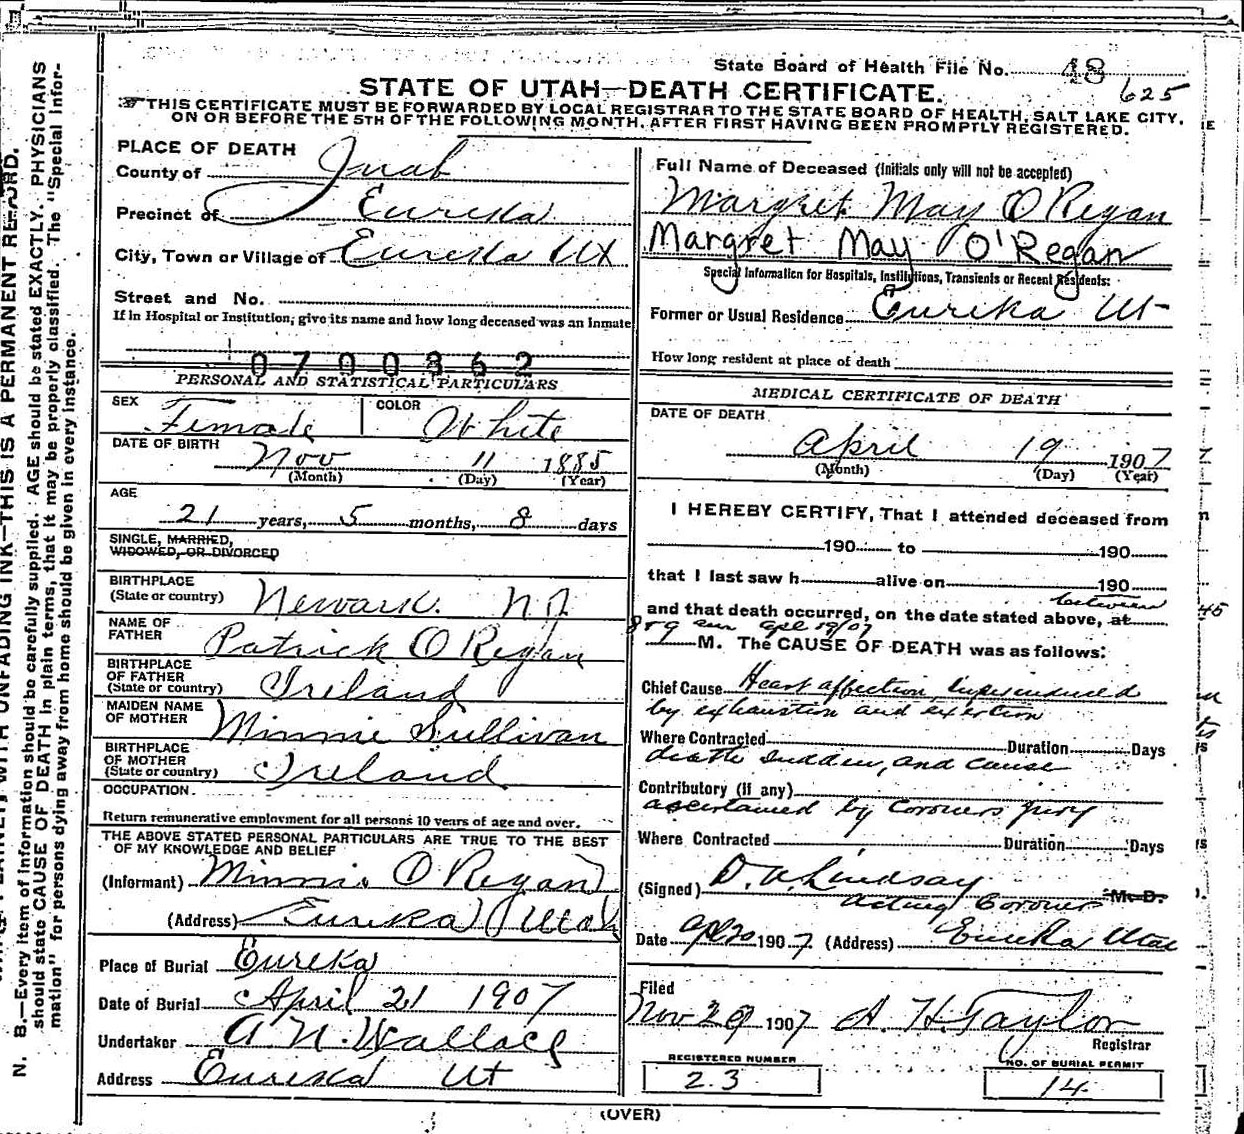 State Board of Health File No. 48
625
STATE OF UTAH—DEATH CERTIFICATE.
THIS CERTIFICATE MUST BE FORWARDED BY LOCAL REGISTRAR TO THE STATE BOARD OF HEALTH, SALT LAKE CITY,
ON OR BEFORE THE 5TH OF THE FOLLOWING MONTH, AFTER FIRST HAVING BEEN PROMPTLY REGISTERED.
N. B.—Every item of information should be carefully supplied. AGE should be stated EXACTLY. PHYSICIANS
should state CAUSE OF DEATH in plain terms, that it may be properly classified. The "Special Infor-
mation" for persons dying away from home should be given in every instance.
WITH UNFADING INK—THIS IS A PERMANENT RECORD.
PLACE OF DEATH
County of Juab
Precinct of Eureka
City, Town or Village of Eureka Ut
Street and No.
If in Hospital or Institution, give its name and how long deceased was an inmate
0700362
PERSONAL AND STATISTICAL PARTICULARS
SEX Female COLOR White
DATE OF BIRTH Nov 11 1885
(Month) (Day) (Year)
AGE
21 years, 5 months, 8 days
SINGLE, MARRIED,
WIDOWED, OR DIVORCED
BIRTHPLACE
(State or country) Newark. N.J.
NAME OF
FATHER Patrick O Regan
BIRTHPLACE
OF FATHER
(State or country) Ireland
MAIDEN NAME
OF MOTHER Minnie Sullivan
BIRTHPLACE
OF MOTHER
(State or country) Ireland
OCCUPATION
Return remunerative employment for all persons 10 years of age and over.
THE ABOVE STATED PERSONAL PARTICULARS ARE TRUE TO THE BEST
OF MY KNOWLEDGE AND BELIEF
(Informant) Minnie O Regan
(Address) Eureka Utah
Place of Burial Eureka
Date of Burial April 21 1907
Undertaker A. N. Wallace
Address Eureka Ut
Full Name of Deceased (Initials only will not be accepted)
Margret May O Regan
Margret May O'Regan
Special Information for Hospitals, Institutions, Transients or Recent Residents:
Former or Usual Residence Eureka Ut
How long resident at place of death
MEDICAL CERTIFICATE OF DEATH
DATE OF DEATH
April 19 1907
(Month) (Day) (Year)
I HEREBY CERTIFY, That I attended deceased from
190 to 190
that I last saw h alive on 190
between
and that death occurred, on the date stated above, at
8 & 9 am Apl 19/07
M. The CAUSE OF DEATH was as follows:
Chief Cause Heart affection superinduced
by exhaustion and exertion
Where Contracted Duration Days
death sudden, and cause
Contributory (if any)
ascertained by Coroners Jury
Where Contracted Duration Days
(Signed) D. W. Lindsay M. D.
acting Coroner
Date Apl 20 1907 (Address) Eureka Utah
Filed
Nov 29 1907 A. H. Taylor
Registrar
REGISTERED NUMBER
23
NO. OF BURIAL PERMIT
14
(OVER)